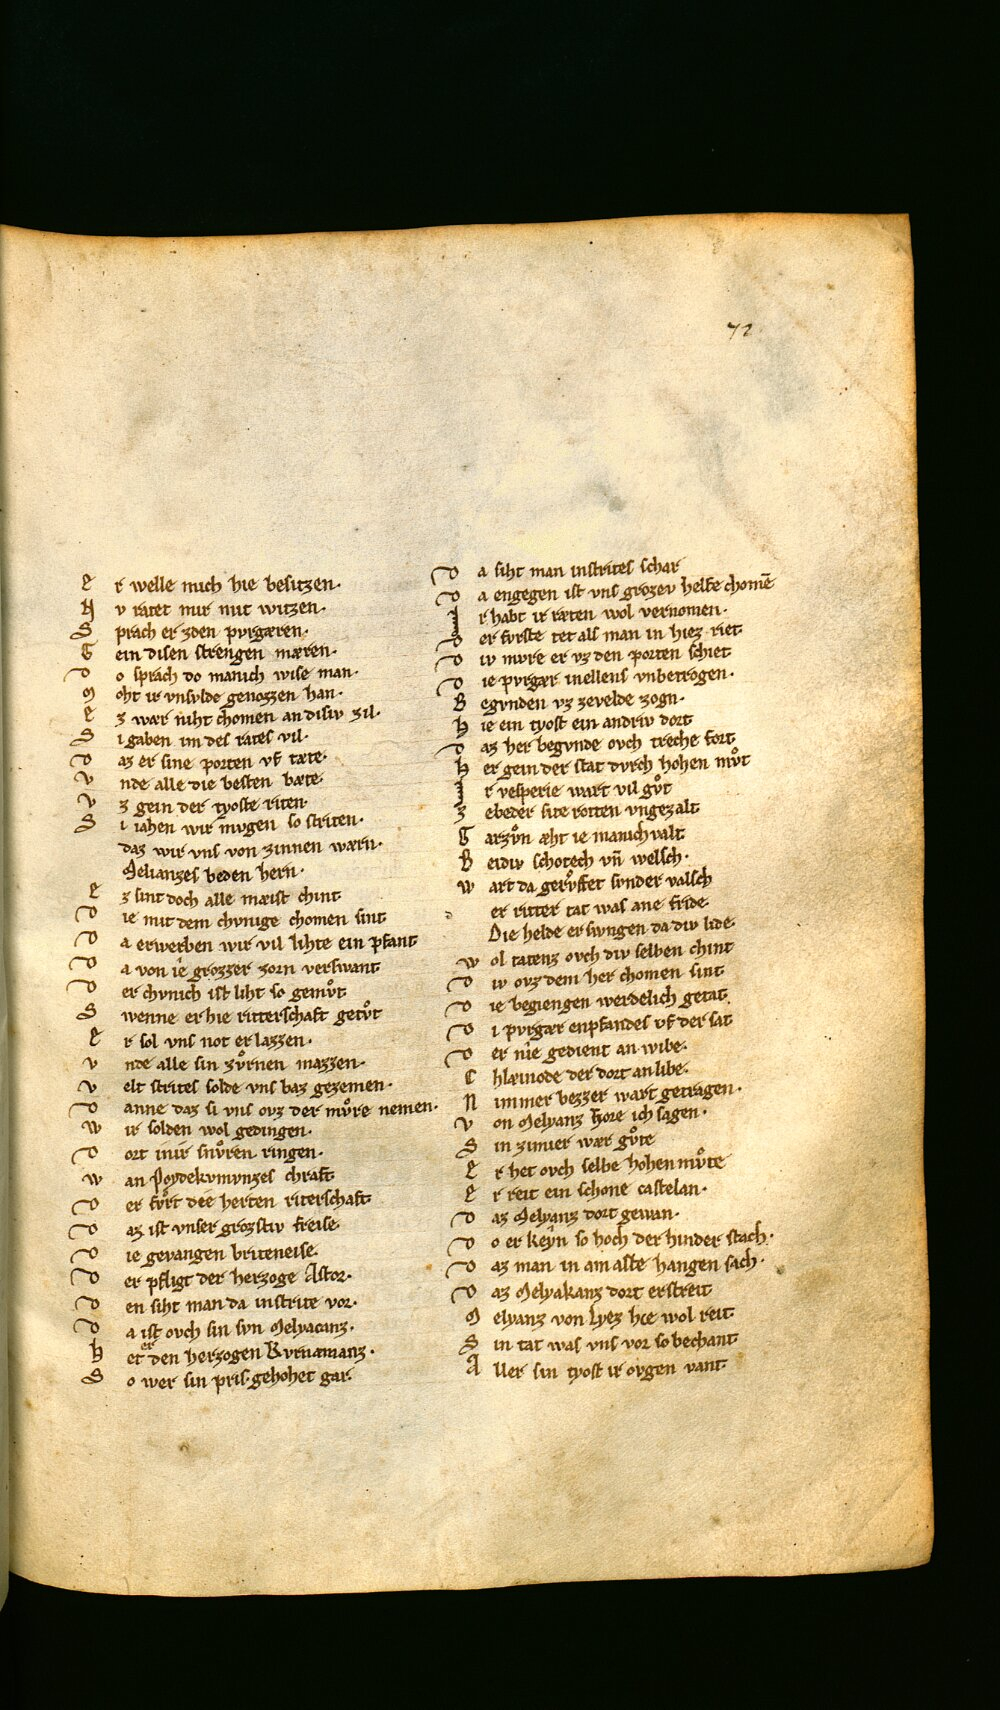 72
E r welle mich hie besitzen·
N v ratet mir mit witzen·
S prach er zden pvrgæren·
G ein disen strengen mæren·
D o sprach do manich wise man·
M oht ir vnsvlde genozzen han·
E z wær niht chomen an disiv zil·
S i gaben im des rates vil·
D az er sine porten vf tæte·
V nde alle die besten bæte·
V z gein der tyoste riten·
S i iahen wir mvgen so striten·
daz wir vns von zinnen wærn·
Melianzes beden hern·
E z sint doch alle mæist chint
D ie mit dem chvnige chomen sint
D a erwerben wir vil lihte ein pfant
D a von ie grozzer zorn verswant
D er chvnich ist liht so gemvͦt
S wenne er hie ritterschaft getvͦt
E r sol vns not erlazzen·
V nde alle sin zvͦrnen mazzen·
V elt strites solde vns baz gezemen·
D anne daz si vns ovz der mvͦre nemen·
W ir solden wol gedingen·
D ort in ir snvͦren ringen·
W an Poydekvmvnzes chraft
D er fvͦrt dee herten riterschaft
D az ist vnser grozstiv freise
D ie gevangen briteneise·
D er pfligt der herzoge Astor·
D en siht man da instrite vor·
D a ist ovch sin svn Melyacanz·
H et er den herzogen Kvrnamanz·
S o wer sin pris gehohet gar·
D a siht man instrites schar
D a engegen ist vns grozev helfe chomē
I r habt ir ræten wol vernomen·
D er fvrste tet als man in hiez riet
D iv mvre er vz den porten schiet
D ie pvrgær inellens vnbetrogen·
B egvnden vz zevelde zogn·
H ie ein tyost ein andriv dort
D az her begvnde ovch treche fort
H er gein der stat dvrch hohen mvͦt
I r vesperie wart vil gvͦt
Z ebeder site rotten vngezalt
G arzvͦn æht ie manichvalt
B eidiv schotech vn̄ welsch·
W art da gervͦffet svnder valsch
er ritter tat was ane fride
Die helde er swngen da div lide
W ol tatenz ovch div selben chint
D iv ovz dem her chomen sint
D ie begiengen werdelich getat
D i pvrgær enpfandes vf der sat
D er nie gedient an wibe·
C hlæinode der dort an libe·
N immer bezzer wart getragen·
V on Melyanz hore ich sagen·
S in zimier wær gvͦte
E r het ovch selbe hohen mvͦte
E r reit ein schone castelan·
D az Melyanz dort gewan·
D o er Keyn so hoch der hinder stach·
D az man in am aste hangen sach·
D az Melyakanz dort erstreit
M elyanz von Lyez hie wol reit
S in tat was vns vor so bechant
A ller sin tyost ir ovgen vant